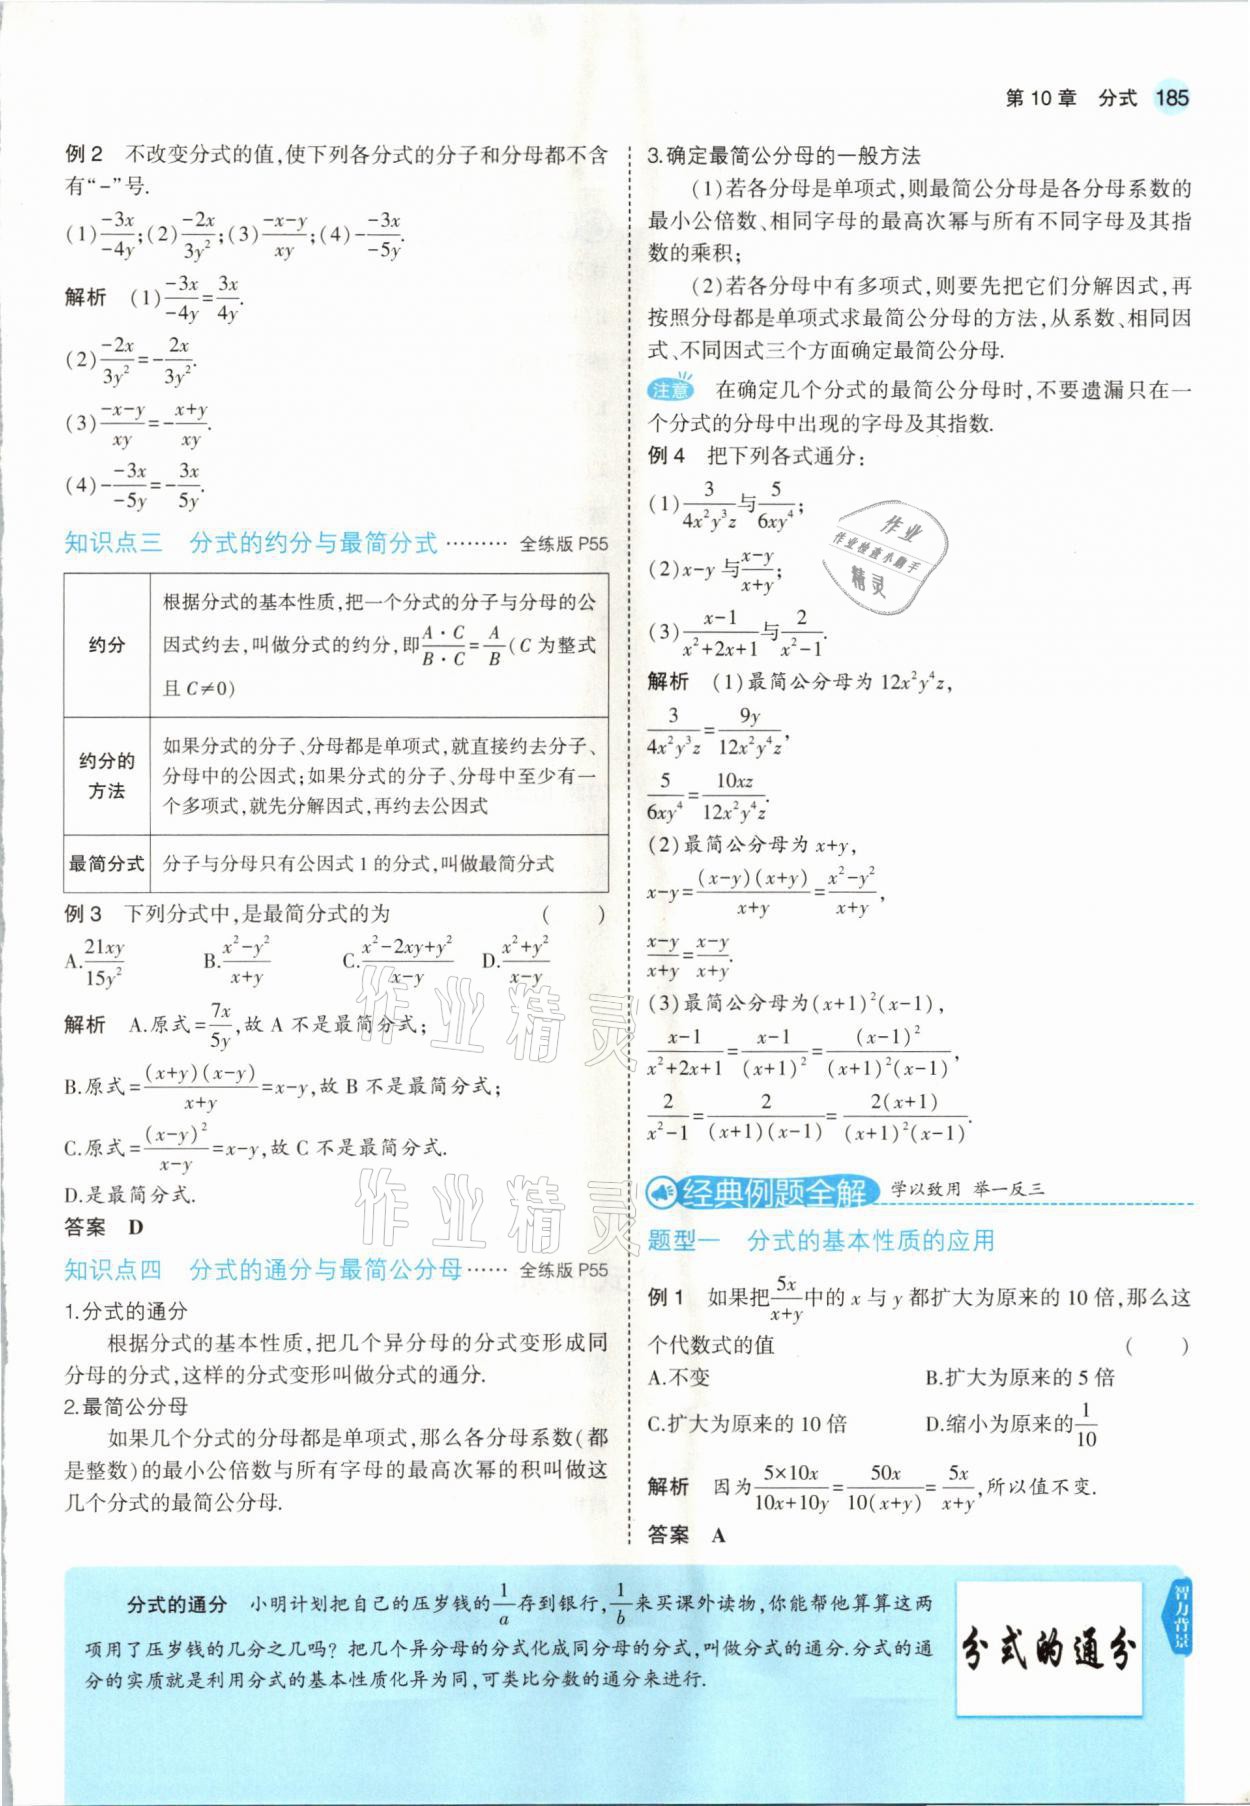 第10章 分式 185
例2 不改变分式的值,使下列各分式的分子和分母都不含
有“-”号.
(1)\frac{-3x}{-4y};(2)\frac{-2x}{3y²};(3)\frac{-x-y}{xy};(4)-\frac{-3x}{-5y}.
解析 (1)\frac{-3x}{-4y}=\frac{3x}{4y}.
(2)\frac{-2x}{3y²}=-\frac{2x}{3y²}.
(3)\frac{-x-y}{xy}=-\frac{x+y}{xy}.
(4)-\frac{-3x}{-5y}=-\frac{3x}{5y}.
知识点三 分式的约分与最简分式 ……… 全练版 P55
约分
根据分式的基本性质,把一个分式的分子与分母的公
因式约去,叫做分式的约分,即\frac{A·C}{B·C}=\frac{A}{B}(C为整式
且C≠0)
约分的
方法
如果分式的分子、分母都是单项式,就直接约去分子、
分母中的公因式;如果分式的分子、分母中至少有一
个多项式,就先分解因式,再约去公因式
最简分式 分子与分母只有公因式1的分式,叫做最简分式
例3 下列分式中,是最简分式的为 ( )
A.\frac{21xy}{15y²} B.\frac{x²-y²}{x+y} C.\frac{x²-2xy+y²}{x-y} D.\frac{x²+y²}{x-y}
解析 A.原式=\frac{7x}{5y},故A不是最简分式;
B.原式=\frac{(x+y)(x-y)}{x+y}=x-y,故B不是最简分式;
C.原式=\frac{(x-y)²}{x-y}=x-y,故C不是最简分式.
D.是最简分式.
答案 D
知识点四 分式的通分与最简公分母 …… 全练版 P55
1.分式的通分
根据分式的基本性质,把几个异分母的分式变形成同
分母的分式,这样的分式变形叫做分式的通分.
2.最简公分母
如果几个分式的分母都是单项式,那么各分母系数(都
是整数)的最小公倍数与所有字母的最高次幂的积叫做这
几个分式的最简公分母.
3.确定最简公分母的一般方法
(1)若各分母是单项式,则最简公分母是各分母系数的
最小公倍数、相同字母的最高次幂与所有不同字母及其指
数的乘积;
(2)若各分母中有多项式,则要先把它们分解因式,再
按照分母都是单项式求最简公分母的方法,从系数、相同因
式、不同因式三个方面确定最简公分母.
注意 在确定几个分式的最简公分母时,不要遗漏只在一
个分式的分母中出现的字母及其指数.
例4 把下列各式通分:
(1)\frac{3}{4x²y³z}与\frac{5}{6xy⁴};
(2)x-y与\frac{x-y}{x+y};
(3)\frac{x-1}{x²+2x+1}与\frac{2}{x²-1}.
解析 (1)最简公分母为12x²y⁴z,
\frac{3}{4x²y³z}=\frac{9y}{12x²y⁴z},
\frac{5}{6xy⁴}=\frac{10xz}{12x²y⁴z}.
(2)最简公分母为x+y,
x-y=\frac{(x-y)(x+y)}{x+y}=\frac{x²-y²}{x+y},
\frac{x-y}{x+y}=\frac{x-y}{x+y}.
(3)最简公分母为(x+1)²(x-1),
\frac{x-1}{x²+2x+1}=\frac{x-1}{(x+1)²}=\frac{(x-1)²}{(x+1)²(x-1)},
\frac{2}{x²-1}=\frac{2}{(x+1)(x-1)}=\frac{2(x+1)}{(x+1)²(x-1)}.
经典例题全解 学以致用 举一反三
题型一 分式的基本性质的应用
例1 如果把\frac{5x}{x+y}中的x与y都扩大为原来的10倍,那么这
个代数式的值 ( )
A.不变 B.扩大为原来的5倍
C.扩大为原来的10倍 D.缩小为原来的\frac{1}{10}
解析 因为\frac{5×10x}{10x+10y}=\frac{50x}{10(x+y)}=\frac{5x}{x+y},所以值不变.
答案 A
分式的通分 小明计划把自己的压岁钱的\frac{1}{a}存到银行,\frac{1}{b}来买课外读物,你能帮他算算这两
项用了压岁钱的几分之几吗?把几个异分母的分式化成同分母的分式,叫做分式的通分.分式的通
分的实质就是利用分式的基本性质化异为同,可类比分数的通分来进行.
分式的通分
智力背景
作业
作业检查小助手
精灵
作业精灵
作业精灵